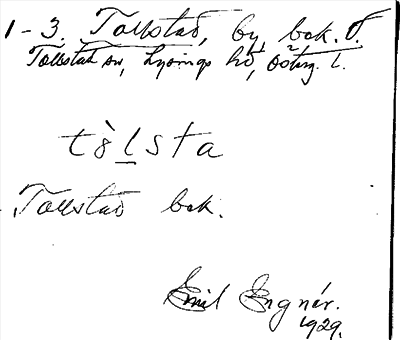 1-3. Tollstad, by, bok. Ö.
Tollstad sn, Lysings hd, Östg. l.
tòlsta
Tollstad bok.
Emil Engnér.
1929.